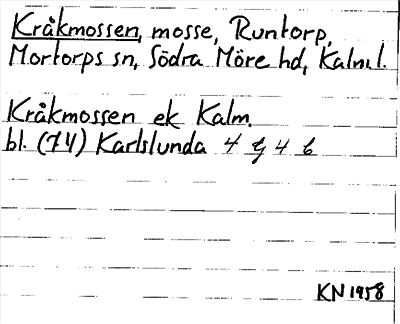 Kråkmossen, mosse, Runtorp,
Mortorps sn, Södra Möre hd, Kalm.l.
Kråkmossen ek Kalm.
bl. (74) Karlslunda 4 G 4 b
KN 1958